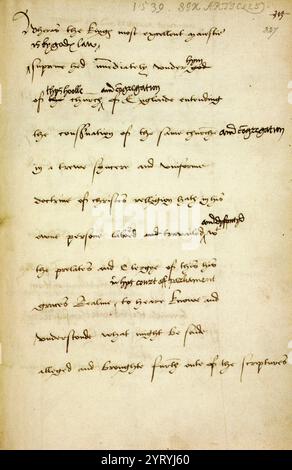 1539. SIX ARTICLES)
327
Wheras the Kyngs most excelent maiestie
ys by godys law
supreme hed imediatly under hym
of thys hoolle church and congregation of Englande entending
the conservation of the same churche and congregation
in a trewe syncere and uniforme
doctrine of christes religion hath in his
owne persone labored and travailed and dysputyd w
the prelates and Clergye of this his
yn hys court of parliament
graces Realme, to heare knowe and
understonde what might be said
alleged and broughte furth oute of the scriptures
alamy
2YRYJ60